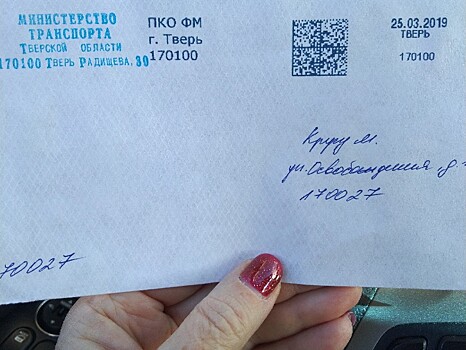 МИНИСТЕРСТВО
ТРАНСПОРТА
ТВЕРСКОЙ ОБЛАСТИ
170100 ТВЕРЬ РАДИЩЕВА, 30
ПКО ФМ
г. Тверь
170100
25.03.2019
ТВЕРЬ
170100
Круу М.
ул. Освобождения, д.
170027
70027